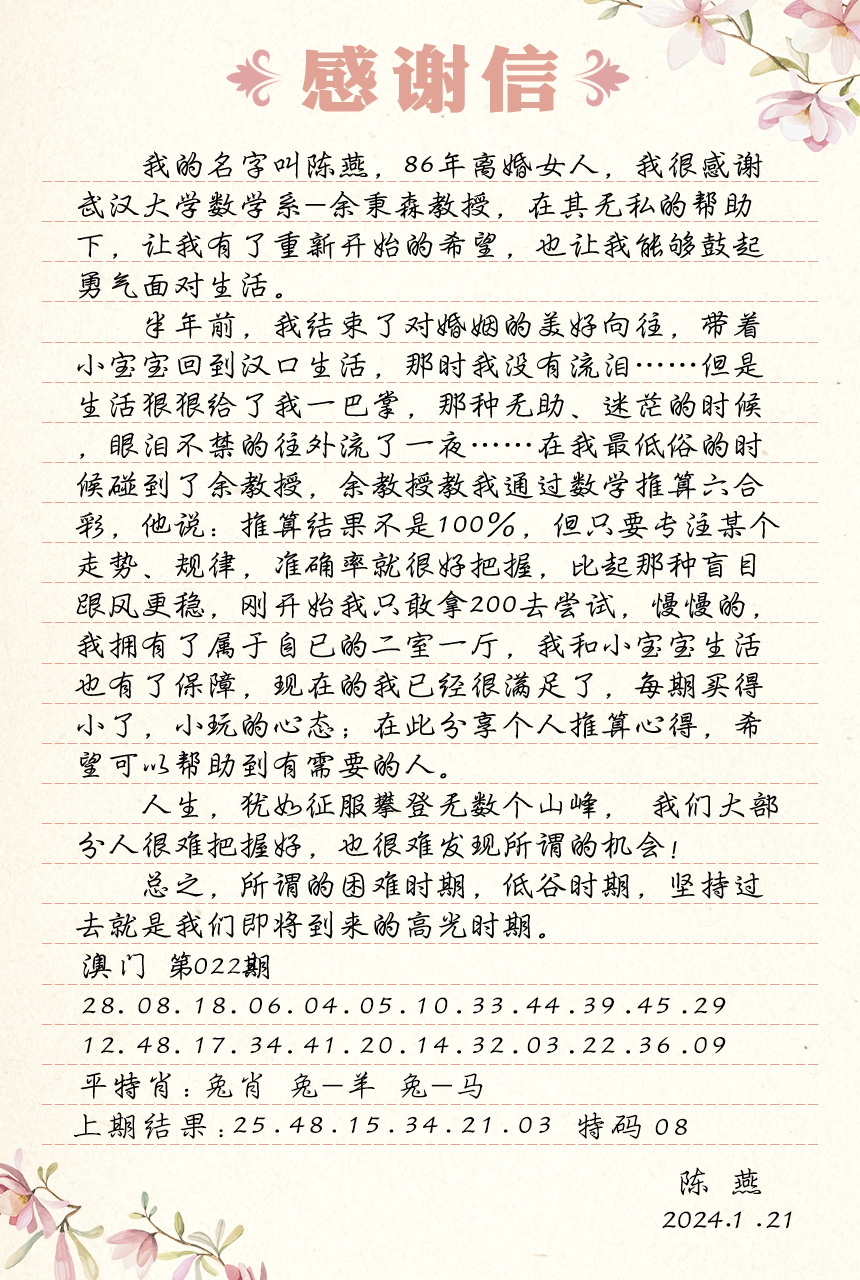 感谢信
我的名字叫陈燕，86年离婚女人，我很感谢
武汉大学数学系—余秉森教授，在其无私的帮助
下，让我有了重新开始的希望，也让我能够鼓起
勇气面对生活。
半年前，我结束了对婚姻的美好向往，带着
小宝宝回到汉口生活，那时我没有流泪……但是
生活狠狠给了我一巴掌，那种无助、迷茫的时候
，眼泪不禁的往外流了一夜……在我最低俗的时
候碰到了余教授，余教授教我通过数学推算六合
彩，他说：推算结果不是100%，但只要专注某个
走势、规律，准确率就很好把握，比起那种盲目
跟风更稳，刚开始我只敢拿200去尝试，慢慢的，
我拥有了属于自已的二室一厅，我和小宝宝生活
也有了保障，现在的我已经很满足了，每期买得
小了，小玩的心态；在此分享个人推算心得，希
望可以帮助到有需要的人。
人生，犹如征服攀登无数个山峰， 我们大部
分人很难把握好，也很难发现所谓的机会！
总之，所谓的困难时期，低谷时期，坚持过
去就是我们即将到来的高光时期。
澳门 第022期
28.08.18.06.04.05.10.33.44.39.45.29
12.48.17.34.41.20.14.32.03.22.36.09
平特肖：兔肖 兔—羊 兔—马
上期结果：25.48.15.34.21.03 特码 08
陈 燕
2024.1.21